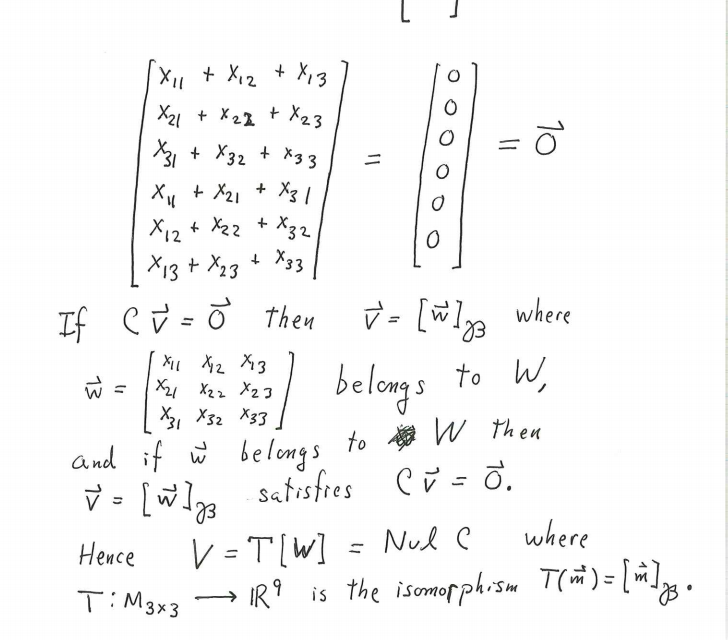 [ ]
[ x₁₁ + x₁₂ + x₁₃ ] = [ 0 ] = 0⃗
[ x₂₁ + x₂₂ + x₂₃ ] [ 0 ]
[ x₃₁ + x₃₂ + x₃₃ ] [ 0 ]
[ x₁₁ + x₂₁ + x₃₁ ] [ 0 ]
[ x₁₂ + x₂₂ + x₃₂ ] [ 0 ]
[ x₁₃ + x₂₃ + x₃₃ ] [ 0 ]
If C v⃗ = 0⃗ then v⃗ = [w⃗]_β where
w⃗ = [ x₁₁ x₁₂ x₁₃ ] belongs to W,
[ x₂₁ x₂₂ x₂₃ ]
[ x₃₁ x₃₂ x₃₃ ]
and if w⃗ belongs to W then
v⃗ = [w⃗]_β satisfies C v⃗ = 0⃗.
Hence V = T[W] = Nul C where
T : M₃ₓ₃ ⟶ ℝ⁹ is the isomorphism T(m⃗) = [m⃗]_β.